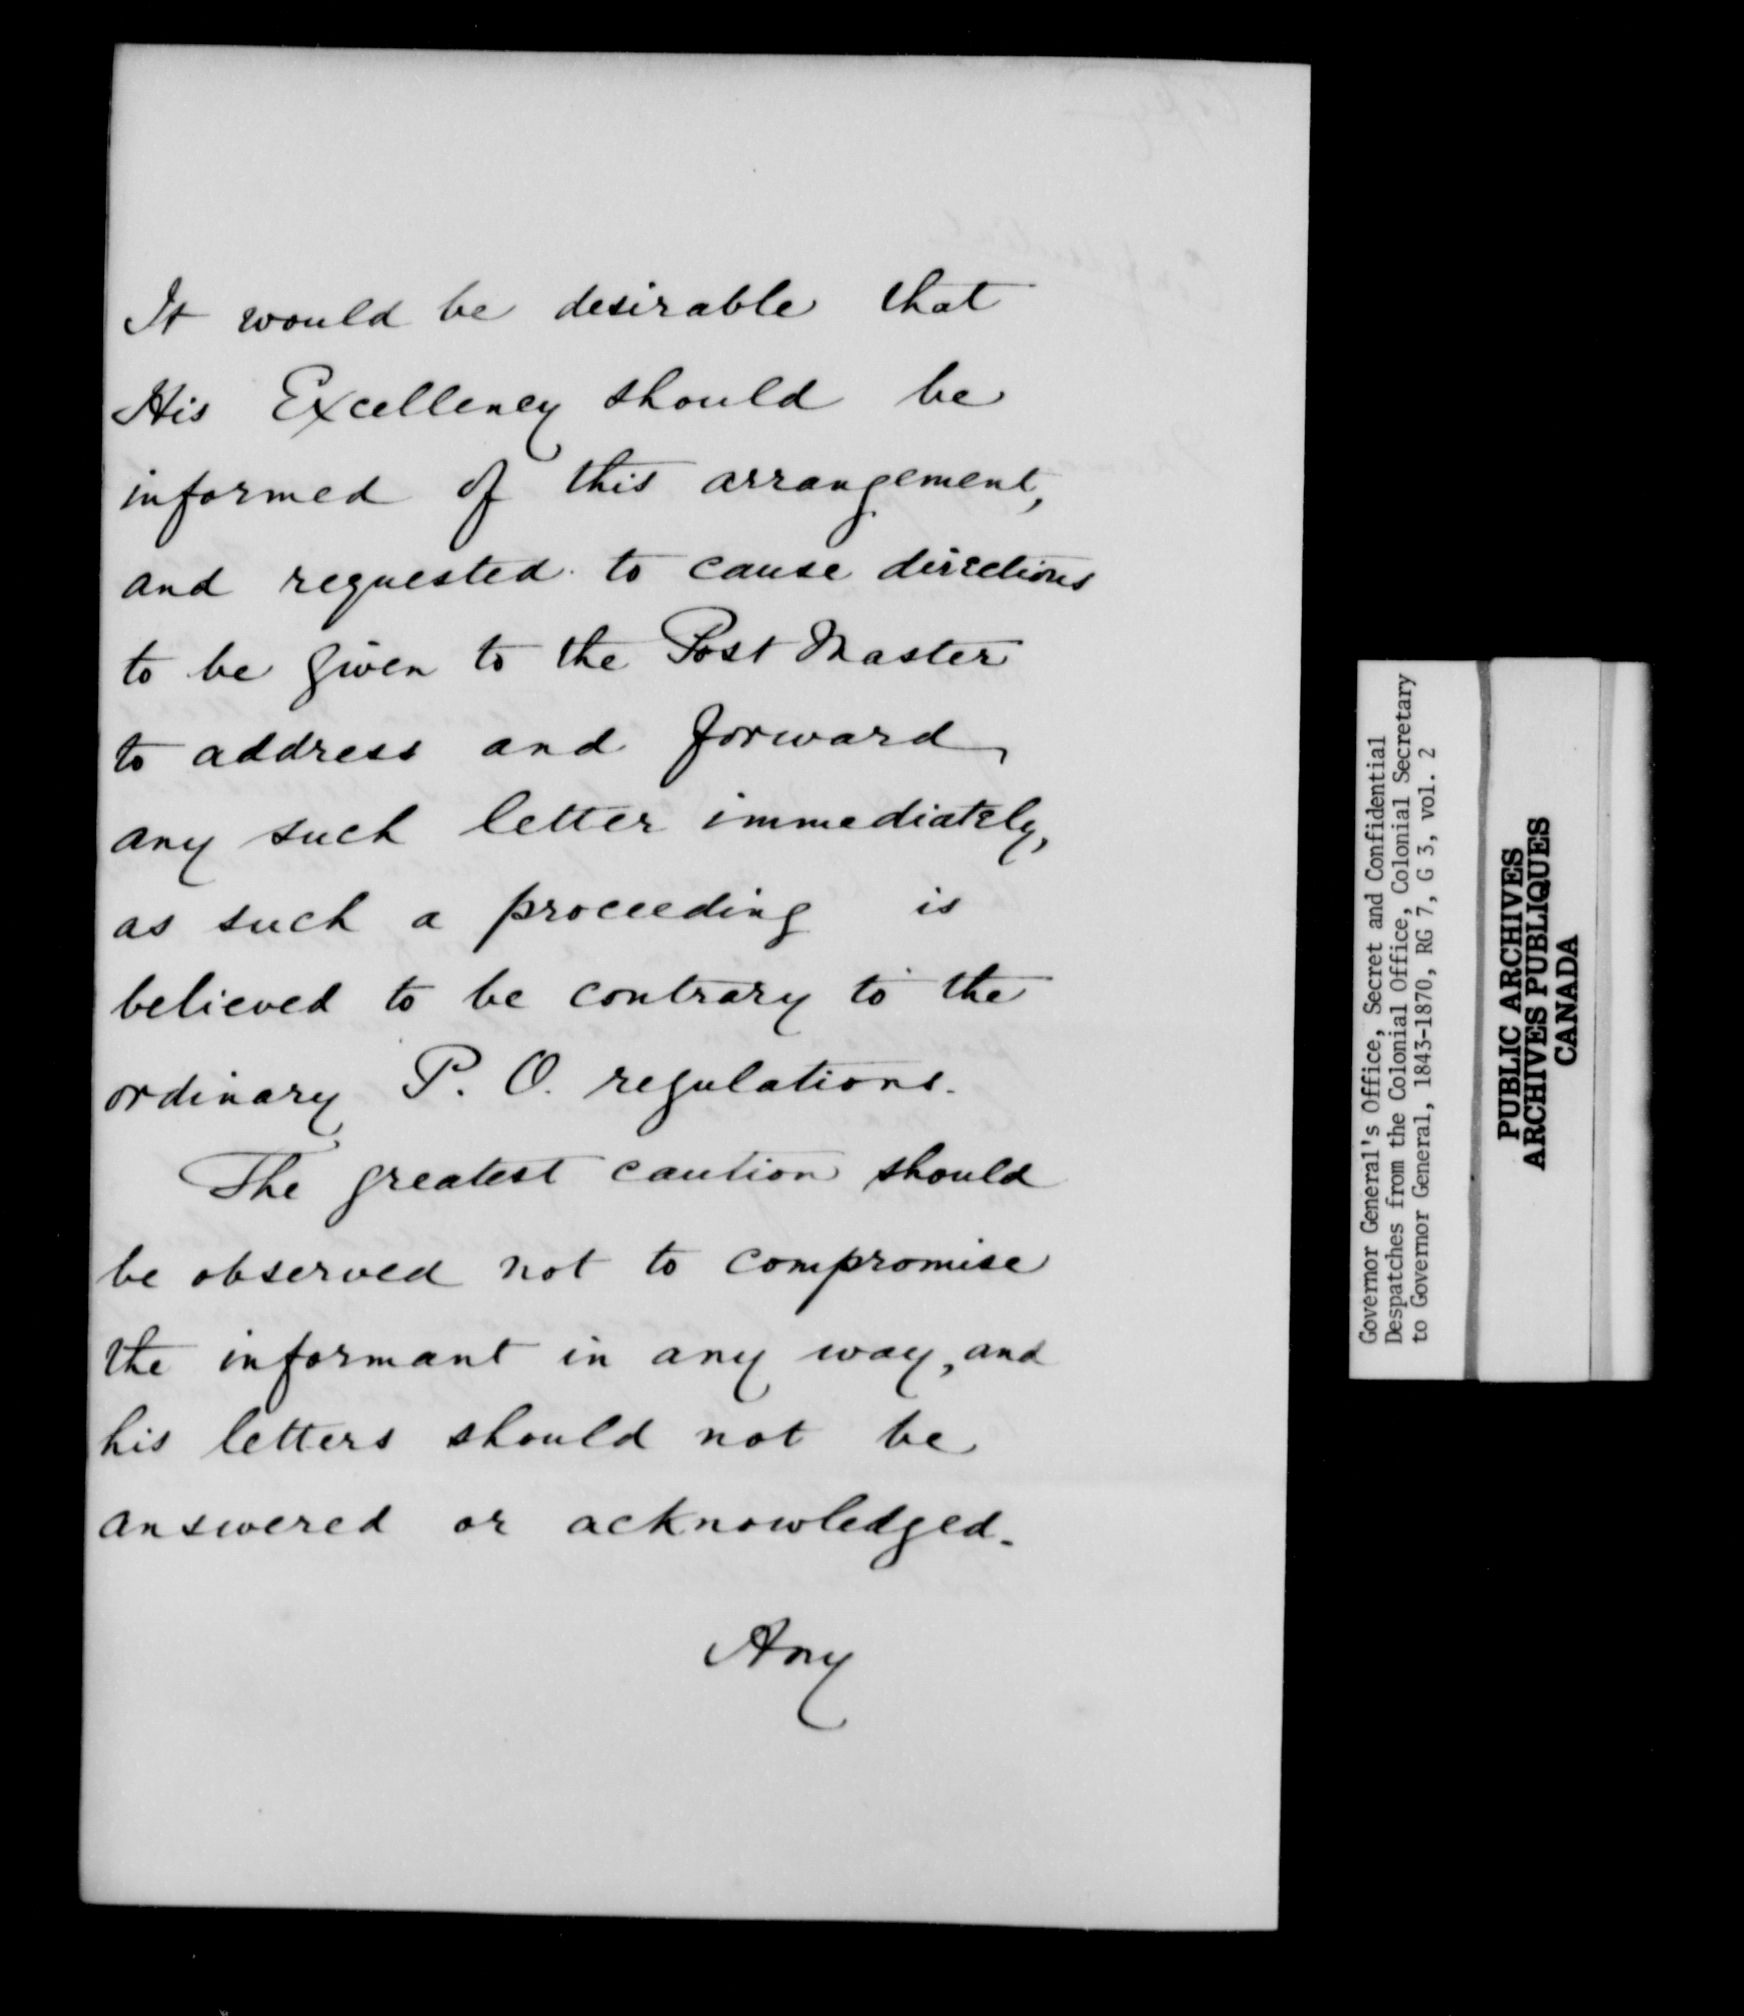 It would be desirable that
His Excellency should be
informed of this arrangement,
and requested to cause directions
to be given to the Post Master
to address and forward
any such letter immediately,
as such a proceeding is
believed to be contrary to the
ordinary P. O. regulations.
The greatest caution should
be observed not to compromise
the informant in any way, and
his letters should not be
answered or acknowledged.
Any
Governor General's Office, Secret and Confidential
Despatches from the Colonial Office, Colonial Secretary
to Governor General, 1843-1870, RG 7, G 3, vol. 2
PUBLIC ARCHIVES
ARCHIVES PUBLIQUES
CANADA